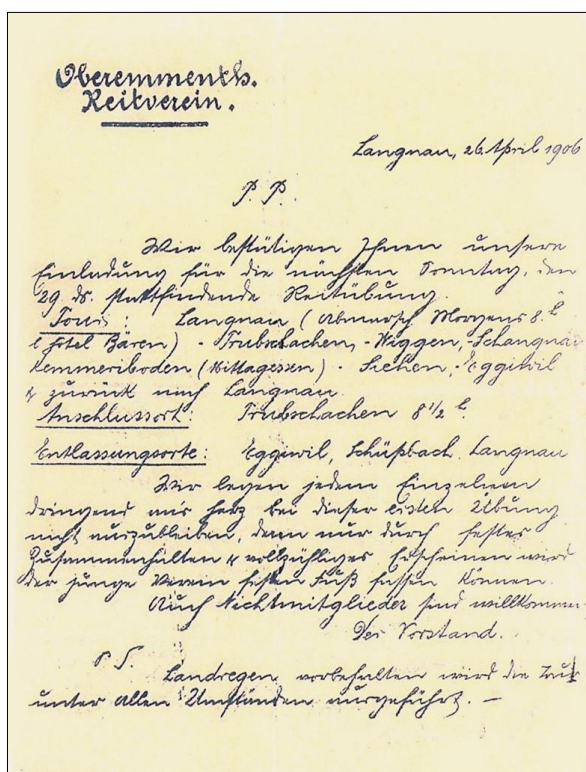 Oberemmenth.
Reitverein.
Langnau, 26. April 1906
P. P.
Wir bestätigen Ihnen unsere
Einladung für die nächsten Sonntag, den
29. ds. stattfindende Reitübung.
Tour: Langnau (Abmarsch Morgens 8 h
Hotel Bären) - Trubschachen, - Wiggen, - Schangnau
Kemmeriboden (Mittagessen) - Siehen, - Eggiwil
& zurück nach Langnau.
Anschlussort: Trubschachen 8 1/2 h.
Entlassungsorte: Eggiwil, Schüpbach, Langnau
Wir legen jedem Einzelnen
dringend ans Herz bei dieser ersten Übung
nicht auszubleiben, denn nur durch festes
Zusammenhalten & vollzähliges Erscheinen wird
der junge Verein festen Fuß fassen können.
Auch Nichtmitglieder sind willkommen
Der Vorstand.
P S.
Landregen vorbehalten wird die Tour
unter allen Umständen ausgeführt. —